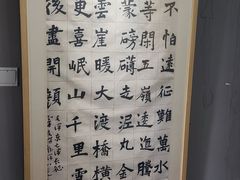 不怕遠征難萬水
等閑五嶺逶迤騰
蒙磅礴走泥丸金
雲崖暖大渡橋橫
更喜岷山千里雪
後盡開顏